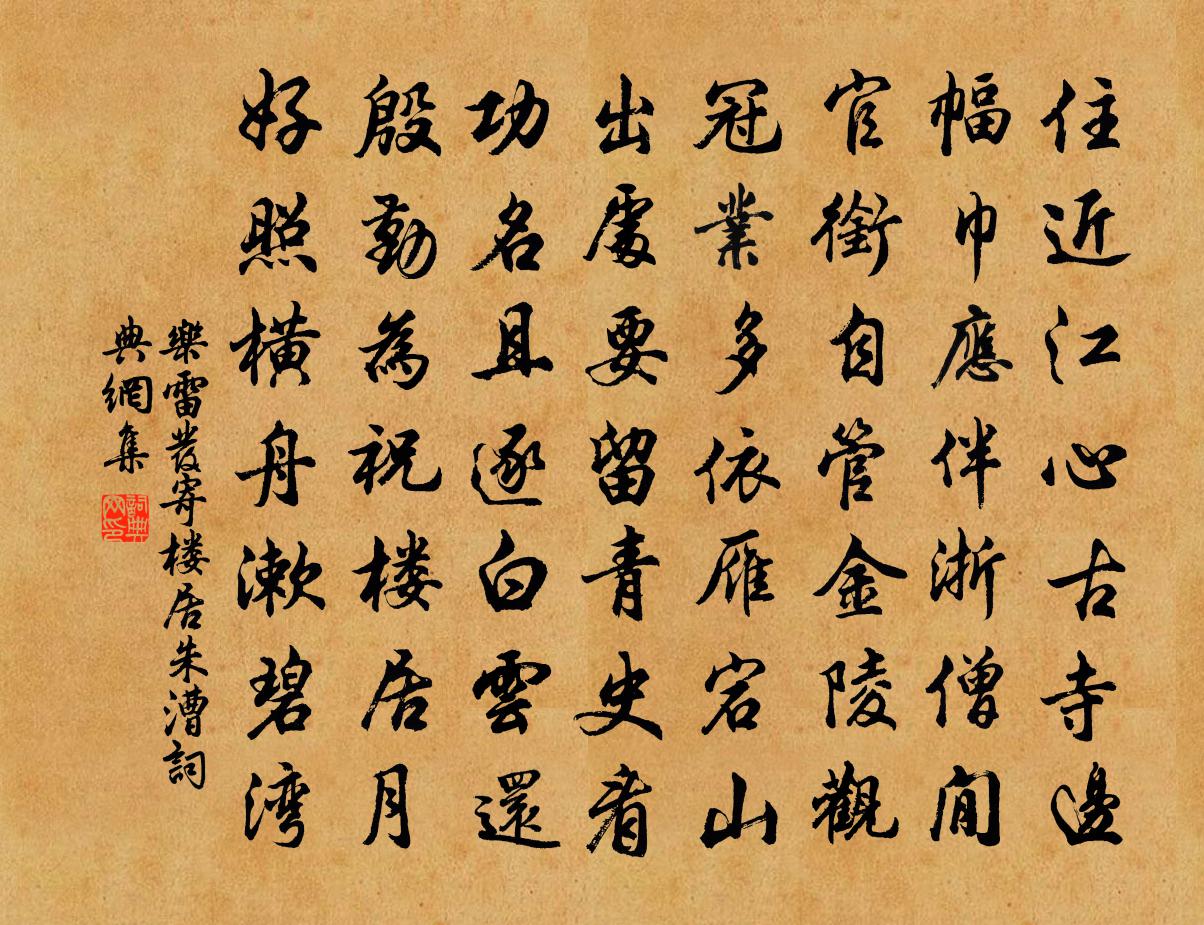 住近江心古寺邊
幅巾應伴淅僧閒
官銜自管金陵觀
冠業多依雁宕山
出處要留青史看
功名且逐白雲還
殷勤為祝楼居月
好照横舟漱碧湾
樂雷發寄楼居朱漕詞
典網集
詞典
网印